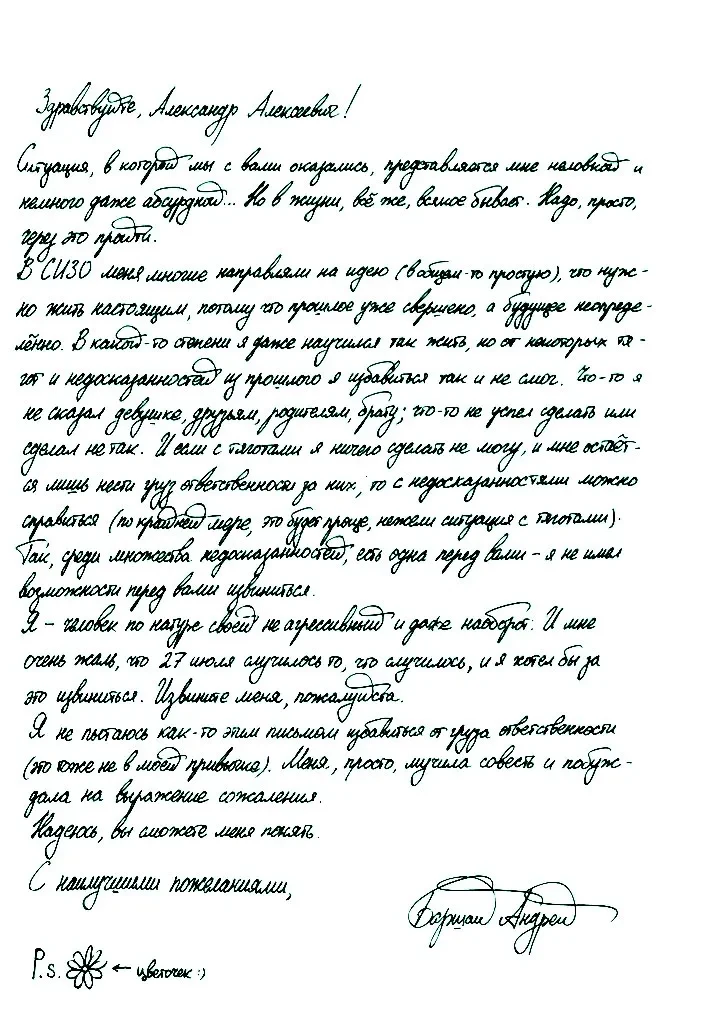 Здравствуйте, Александр Алексеевич!
Ситуация, в которой мы с вами оказались, представляется мне неловкой и
немного даже абсурдной... Но в жизни, всё же, всякое бывает. Надо, просто,
через это пройти.
В СИЗО меня многие направляли на идею (в общем-то простую), что нуж-
но жить настоящим, потому что прошлое уже свершено, а будущее неопреде-
лённо. В какой-то степени я даже научился так жить, но от некоторых тя-
гот и недосказанностей из прошлого я избавиться так и не смог. Что-то я
не сказал девушке, друзьям, родителям, брату; что-то не успел сделать или
сделал не так. И если с тяготами я ничего сделать не могу, и мне остаёт-
ся лишь нести груз ответственности за них, то с недосказанностями можно
справиться (по крайней мере, это будет проще, нежели ситуация с тяготами).
Так, среди множества недосказанностей, есть одна перед вами - я не имел
возможности перед вами извиниться.
Я - человек по натуре своей не агрессивный и даже наоборот. И мне
очень жаль, что 27 июля случилось то, что случилось, и я хотел бы за
это извиниться. Извините меня, пожалуйста.
Я не пытаюсь как-то этим письмом избавиться от груза ответственности
(это тоже не в моей привычке). Меня, просто, мучила совесть и побуж-
дала на выражение сожаления.
Надеюсь, вы сможете меня понять.
С наилучшими пожеланиями,
Баршай Андрей
P.s. ← цветочек :)